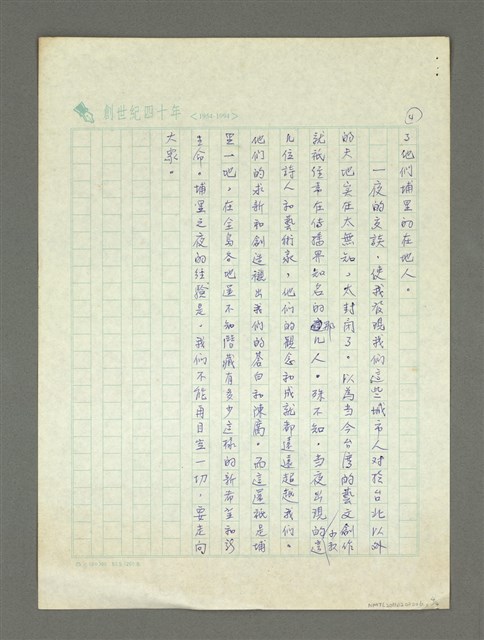 創世紀四十年 <1954-1994>
4
了他們埔里的在地人。
一夜的交談，使我發現我們這些城市人對於台北以外
的天地实在太無知，太封閉了。以為當今台灣的藝文創作
就祇住本在傳播界知名的那几人。殊不知，當夜出現的
几位詩人和藝術家，他們的觀念和成就都遠遠超越我們。
他們的求新和創造襯出我們的蒼白和陳腐。而這還祇是埔
里一地，在全島各地還不知潛藏有多少這樣的新希望和新
生命。埔里之夜的经驗是，我們不能再目空一切，要走向
大眾。